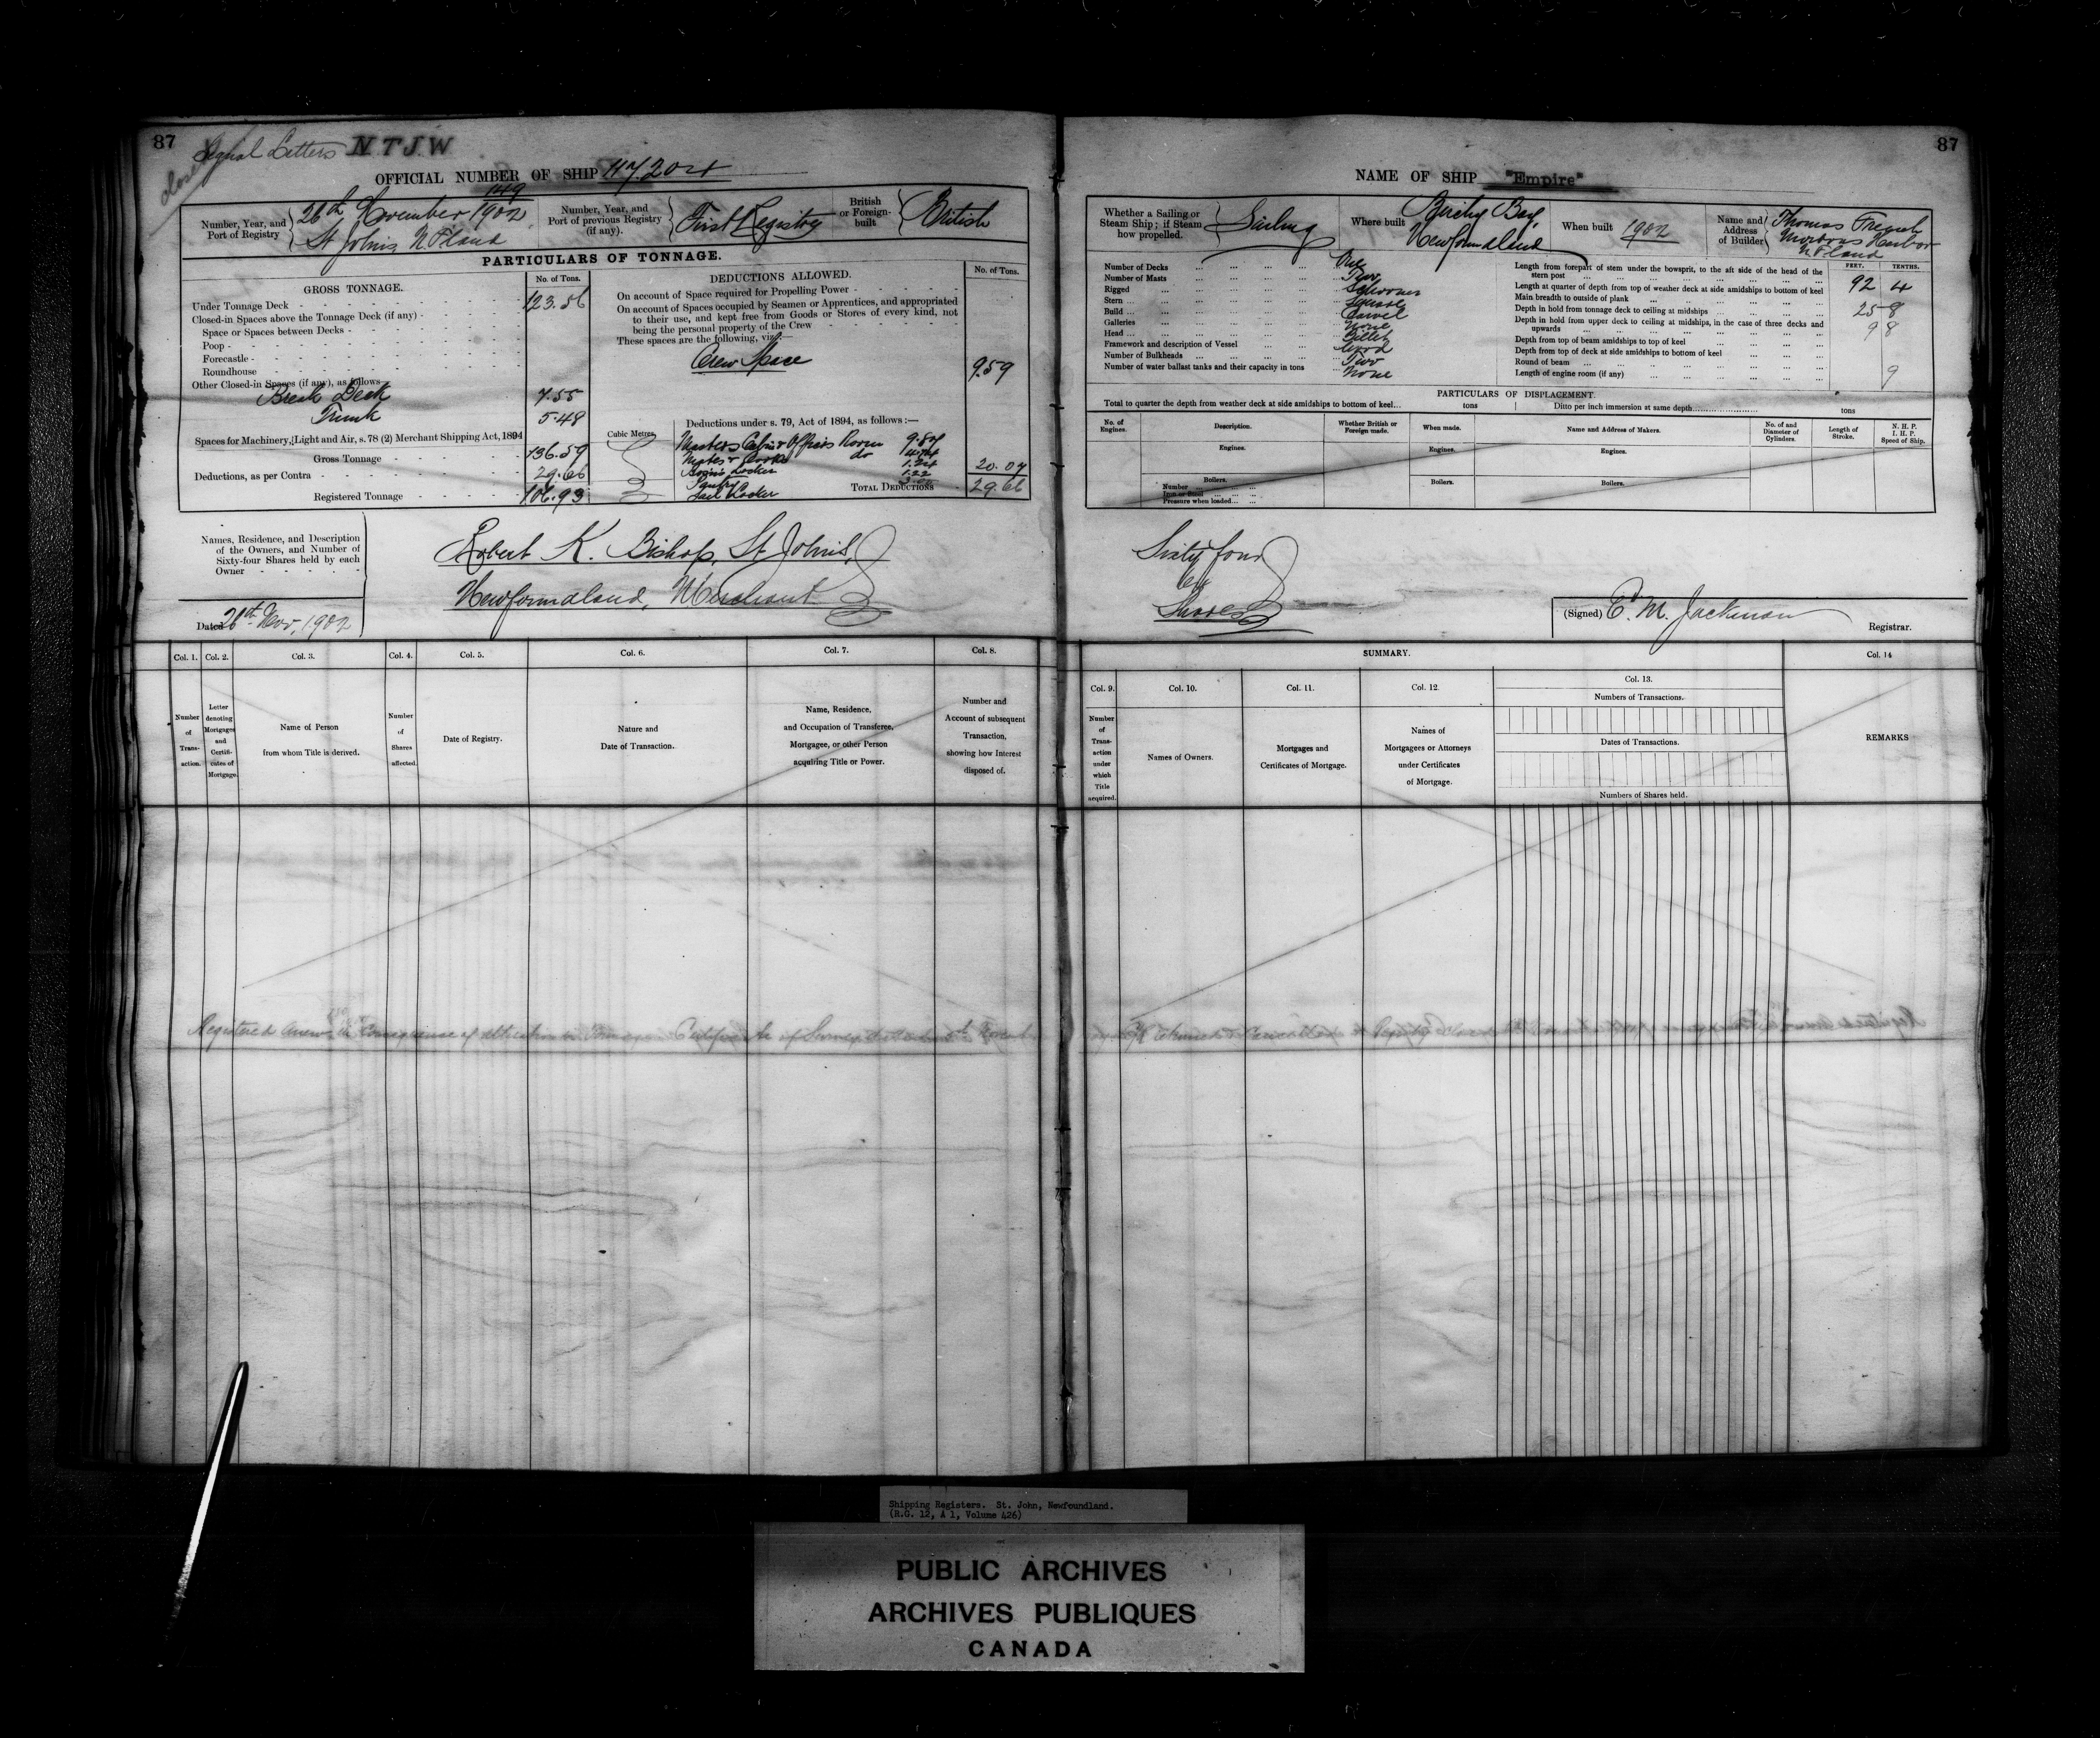 87
Signal Letters NTJW
closed
OFFICIAL NUMBER OF SHIP 117.204
Number, Year, and Port of Registry
149
26th November 1902
St Johns N F land
Number, Year, and Port of previous Registry (if any).
First Registry
British or Foreign-built
British
PARTICULARS OF TONNAGE.
GROSS TONNAGE.
No. of Tons.
Under Tonnage Deck 123.56
Closed-in Spaces above the Tonnage Deck (if any)
Space or Spaces between Decks
Poop
Forecastle
Roundhouse
Other Closed-in Spaces (if any), as follows
Break Deck 7.55
Trunk 5.48
Spaces for Machinery, Light and Air, s. 78 (2) Merchant Shipping Act, 1894
Gross Tonnage 136.59
Deductions, as per Contra 29.66
Registered Tonnage 106.93
Cubic Metres
DEDUCTIONS ALLOWED.
No. of Tons.
On account of Space required for Propelling Power
On account of Spaces occupied by Seamen or Apprentices, and appropriated
to their use, and kept free from Goods or Stores of every kind, not
being the personal property of the Crew
These spaces are the following, viz:—
Crew Space 9.59
Deductions under s. 79, Act of 1894, as follows:—
Masters Cabin & Officers Room
Mates & Cooks do
Bosins Locker
Pantry 1.22
Sail Locker
20.07
TOTAL DEDUCTIONS 29.66
Names, Residence, and Description
of the Owners, and Number of
Sixty-four Shares held by each
Owner
Robert K. Bishop, St Johns,
Newfoundland, Merchant
Dated 26th Nov, 1902
Col. 1. Col. 2. Col. 3. Col. 4. Col. 5. Col. 6. Col. 7. Col. 8.
Number of Transaction.
Letter denoting Mortgages and Certificates of Mortgage.
Name of Person from whom Title is derived.
Number of Shares affected.
Date of Registry.
Nature and Date of Transaction.
Name, Residence, and Occupation of Transferee, Mortgagee, or other Person acquiring Title or Power.
Number and Account of subsequent Transaction, showing how Interest disposed of.
Registered anew in consequence of alteration in Tonnage Certificate of Survey
87
NAME OF SHIP "Empire"
Whether a Sailing or Steam Ship; if Steam how propelled.
Sailing
Where built
Birchy Bay
Newfoundland
When built 1902
Name and Address of Builder
Thomas French
Mortons Harbor
N F land
Number of Decks One
Number of Masts Two
Rigged Schooner
Stern Square
Build Carvel
Galleries None
Head Billet
Framework and description of Vessel Wood
Number of Bulkheads Two
Number of water ballast tanks and their capacity in tons None
FEET. TENTHS.
Length from forepart of stem under the bowsprit, to the aft side of the head of the
stern post 92 4
Length at quarter of depth from top of weather deck at side amidships to bottom of keel
Main breadth to outside of plank 25 8
Depth in hold from tonnage deck to ceiling at midships 9 8
Depth in hold from upper deck to ceiling at midships, in the case of three decks and
upwards
Depth from top of beam amidships to top of keel
Depth from top of deck at side amidships to bottom of keel
Round of beam 9
Length of engine room (if any)
PARTICULARS OF DISPLACEMENT
Total to quarter the depth from weather deck at side amidships to bottom of keel... tons
Ditto per inch immersion at same depth tons
No. of Engines.
Description.
Whether British or Foreign made.
When made.
Name and Address of Makers.
No. of and Diameter of Cylinders.
Length of Stroke.
N. H. P.
I. H. P.
Speed of Ship.
Engines. Engines. Engines.
Boilers. Boilers. Boilers.
Number
Iron or Steel
Pressure when loaded
Sixty four
Shares
(Signed) E. M. Jackman
Registrar.
SUMMARY.
Col. 9. Col. 10. Col. 11. Col. 12. Col. 13. Col. 14
Number of Transaction under which Title acquired.
Names of Owners.
Mortgages and Certificates of Mortgage.
Names of Mortgagees or Attorneys under Certificates of Mortgage.
Numbers of Transactions.
Dates of Transactions.
Numbers of Shares held.
REMARKS
Shipping Registers. St. John, Newfoundland.
(R.G. 12, A 1, Volume 426)
PUBLIC ARCHIVES
ARCHIVES PUBLIQUES
CANADA